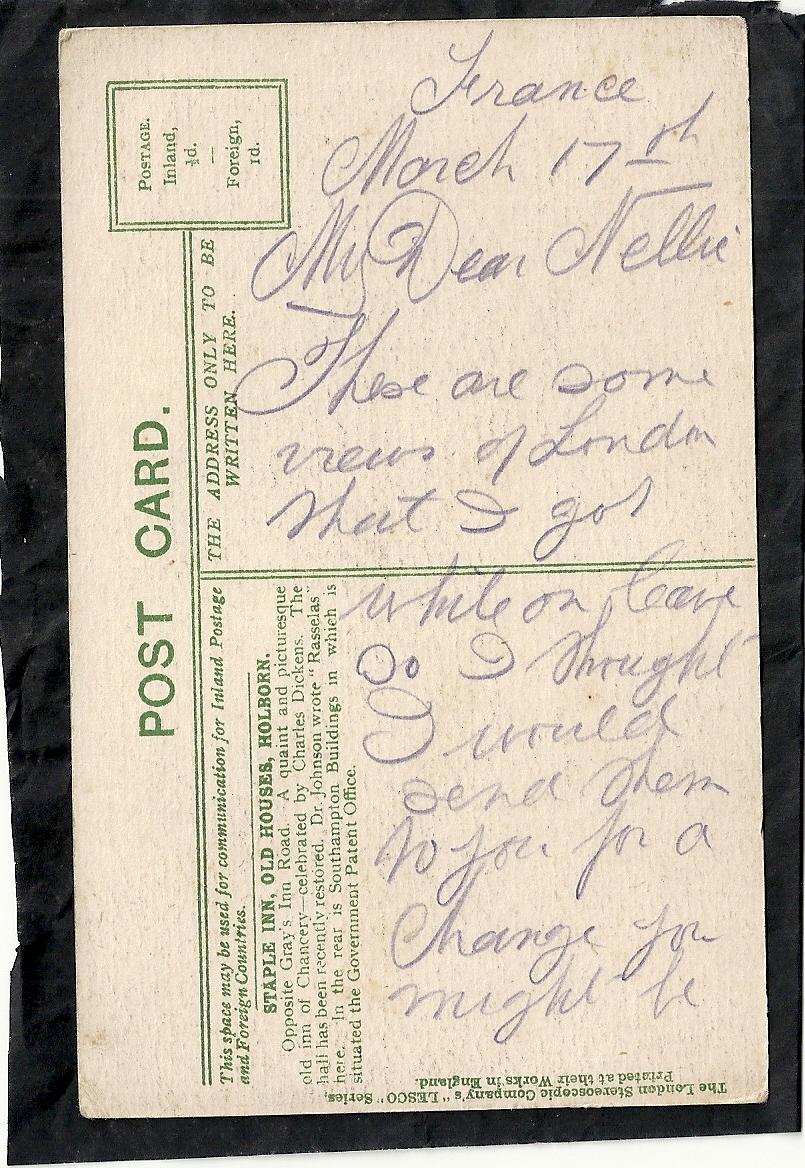 POST CARD.
POSTAGE.
Inland,
½d.
—
Foreign,
1d.
THE ADDRESS ONLY TO BE
WRITTEN HERE.
This space may be used for communication for Inland Postage
and Foreign Countries.
STAPLE INN, OLD HOUSES, HOLBORN.
Opposite Gray's Inn Road. A quaint and picturesque
old inn of Chancery—celebrated by Charles Dickens. The
hall has been recently restored. Dr. Johnson wrote "Rasselas"
here. In the rear is Southampton Buildings in which is
situated the Government Patent Office.
The London Stereoscopic Company's "LESCO" Series.
Printed at their Works in England.
France
March 17th
My Dear Nellie
These are some
views of London
that I got
while on leave
So I thought
I would
send them
to you for a
Change you
might be